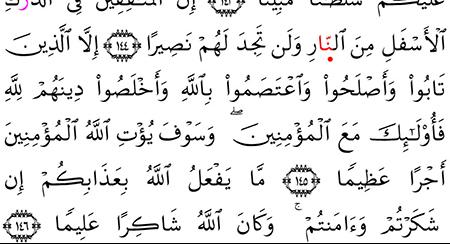 عَلَيۡكُمۡ سُلۡطَٰنٗا مُّبِينًا ١٤٤ إِنَّ ٱلۡمُنَٰفِقِينَ فِي ٱلدَّرۡكِ
ٱلۡأَسۡفَلِ مِنَ ٱلنَّارِ وَلَن تَجِدَ لَهُمۡ نَصِيرًا ١٤٤ إِلَّا ٱلَّذِينَ
تَابُواْ وَأَصۡلَحُواْ وَٱعۡتَصَمُواْ بِٱللَّهِ وَأَخۡلَصُواْ دِينَهُمۡ لِلَّهِ
فَأُوْلَٰٓئِكَ مَعَ ٱلۡمُؤۡمِنِينَۖ وَسَوۡفَ يُؤۡتِ ٱللَّهُ ٱلۡمُؤۡمِنِينَ
أَجۡرًا عَظِيمٗا ١٤٥ مَّا يَفۡعَلُ ٱللَّهُ بِعَذَابِكُمۡ إِن
شَكَرۡتُمۡ وَءَامَنتُمۡۚ وَكَانَ ٱللَّهُ شَاكِرًا عَلِيمٗا ١٤٦